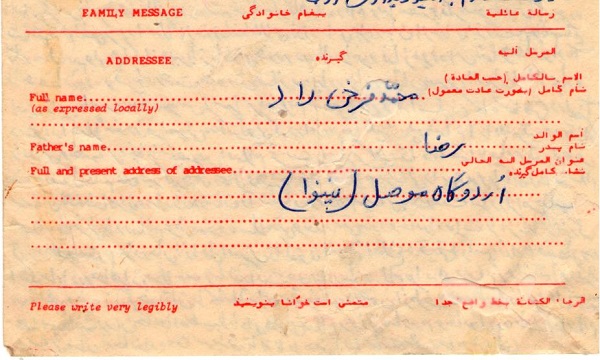 FAMILY MESSAGE پیغام خانوادگی رسالة عائلية
ADDRESSEE گیرنده المرسل الیه
الاسم بالکامل (حسب العادة)
Full name محمد فرخی راد نام کامل (بصورت عادت معمول)
(as expressed locally)
اسم الوالد
Father's name رضا نام پدر
عنوان المرسل الیه الحالی
Full and present address of addressee نشانی کامل گیرنده
اردوگاه موصل (نینوا)
Please write very legibly متمنی است خوانا بنویسید الرجاء الکتابة بخط واضح جدا